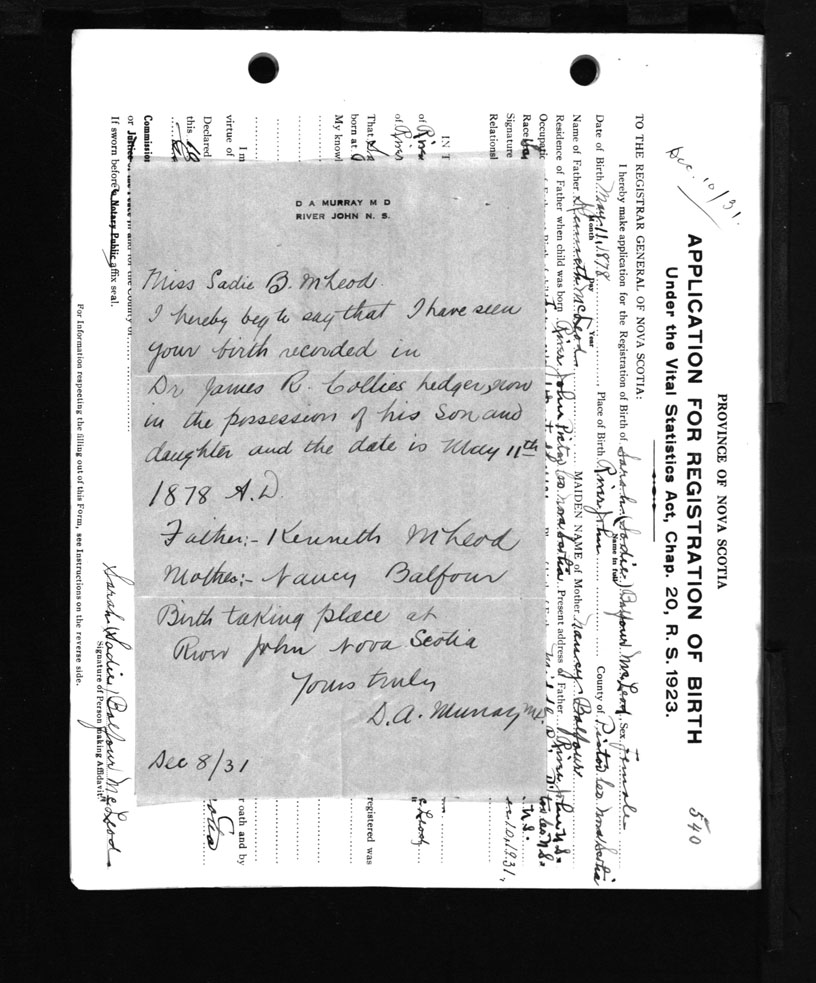 PROVINCE OF NOVA SCOTIA
APPLICATION FOR REGISTRATION OF BIRTH
Under the Vital Statistics Act, Chap. 20, R. S. 1923.
540
Dec. 10/31.
TO THE REGISTRAR GENERAL OF NOVA SCOTIA:
I hereby make application for the Registration of Birth of Sarah (Sadie) Balfour McLeod Sex Female
Name in full
Date of Birth May 11, 1878 Place of Birth River John County of Pictou Co. Nova Scotia
Month Day Year
Name of Father Kenneth McLeod MAIDEN NAME of Mother Nancy Balfour
Residence of Father when child was born River John Pictou Co. Nova Scotia Present address of Father River John N.S.
Race
Signature
IN T
of
of
That
born at
My knowl
registered was
I m
r oath and by
virtue of
Declared
this
Commission
or
If sworn before a Notary Public affix seal.
Sarah (Sadie) Balfour McLeod
Signature of Person making Affidavit
For Information respecting the filling out of this Form, see Instructions on the reverse side.
D A MURRAY M D
RIVER JOHN N. S.
Miss Sadie B. McLeod
I hereby beg to say that I have seen
your birth recorded in
Dr James R. Collies Ledger, now
in the possession of his Son and
daughter and the date is May 11th
1878 A.D.
Father:- Kenneth McLeod
Mother:- Nancy Balfour
Birth taking place at
River John Nova Scotia
Yours truly
D. A. Murray M.D.
Dec 8/31